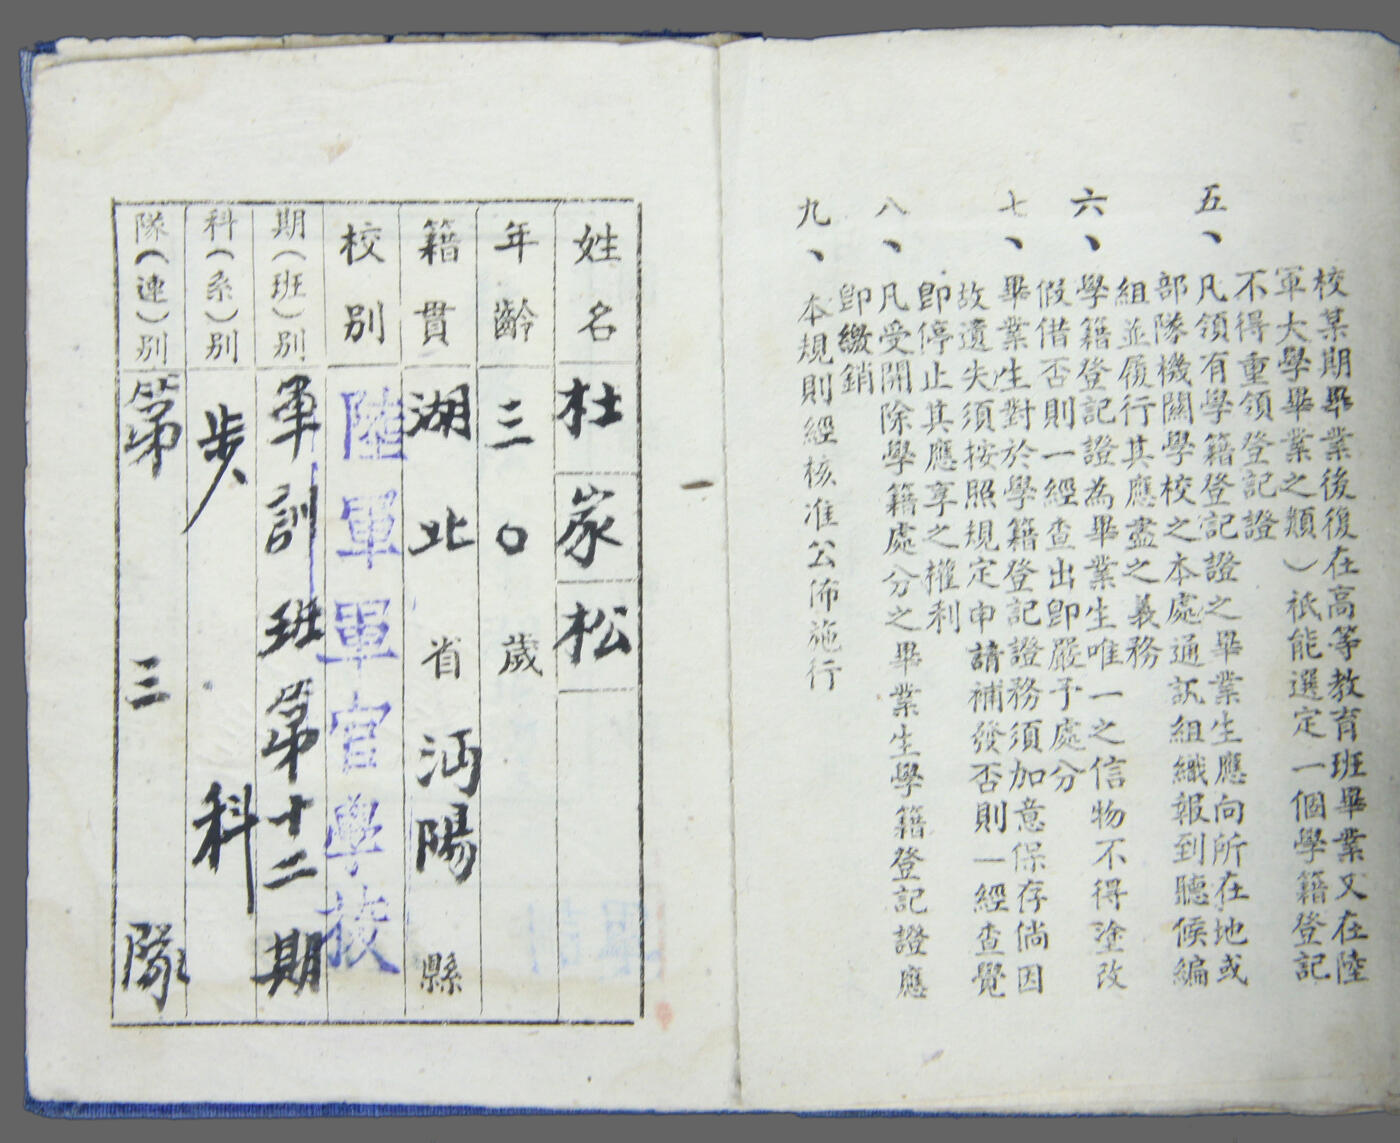 校某期畢業後復在高等教育班畢業又在陸
軍大學畢業之類）祇能選定一個學籍登記
不得重領登記證
五、凡領有學籍登記證之畢業生應向所在地或
部隊機關學校之本處通訊組織報到聽候編
組並履行其應盡之義務
六、學籍登記證為畢業生唯一之信物不得塗改
假借否則一經查出卽嚴予處分
七、畢業生對於學籍登記證務須加意保存倘因
故遺失須按照規定申請補發否則一經查覺
卽停止其應享之權利
八、凡受開除學籍處分之畢業生學籍登記證應
卽繳銷
九、本規則經核准公佈施行
姓名 杜家松
年齡 三〇歲
籍貫 湖北省沔陽縣
校別 陸軍軍官學校
期（班）別 軍訓班第十二期
科（系）別 步科
隊（連）別 第三隊